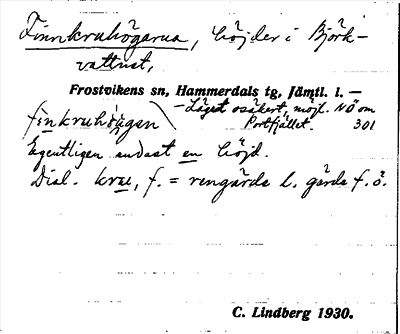 Finnkruhögarna, höjder i Björk-
vattnet,
Frostvikens sn, Hammerdals tg, Jämtl. l. —
— Läget osäkert, möjl. NÖ om
Portfjället. 301
finkruhö̀gɐn
Egentligen endast en höjd.
Dial. krue, f. = rengärda l. gärda f. ö.
C. Lindberg 1930.